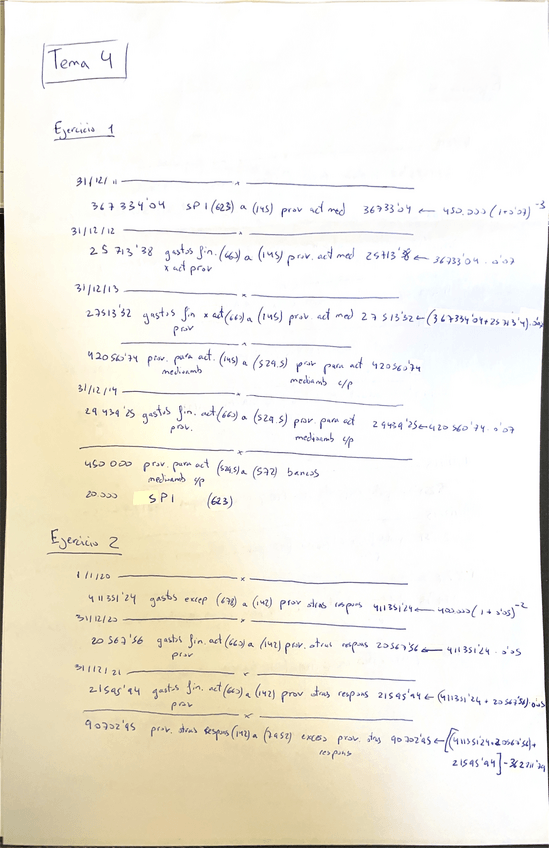 Tema 4
Ejercicio 1
31/12/11 x
367 334'04 SPI (623) a (145) prov act med 36733'04 ← 450.000 (1+0'07)^-3
31/12/12 x
25 713'38 gastos fin. (660) a (145) prov. act med 25713'38 ← 36733'04 . 0'07
x act prov
31/12/13 x
27513'52 gastos fin x act (660) a (145) prov act med 27513'52 ← (367334'04+25713'4).
prov
x
420560'74 prov. para act. (145) a (529.5) prov para act 420560'74
medioamb medioamb c/p
31/12/14 x
29 439'25 gastos fin. act (660) a (529.5) prov. para act 29439'25 ← 420 560'74 . 0'07
prov. medioamb c/p
x
450 000 prov. para act (529.5) a (572) bancos
medioamb c/p
20.000 SPI (623)
Ejercicio 2
1/1/20 x
411351'24 gastos excep (678) a (142) prov otras respons 411351'24 ← (1+0'05)^-2
31/12/20 x
20 567'56 gastos fin. act (660) a (142) prov. otras respons 20567'56 ← 411351'24 . 0'05
prov
31/12/21 x
21595'94 gastos fin. act (660) a (142) prov otras respons 21595'94 ← (411351'24 + 20567'56).
prov
x
90702'95 prov. otras respons (142) a (7952) exceso prov. otras 90702'95 ← [(411351'24+20567'56)+
respons 21595'94]-